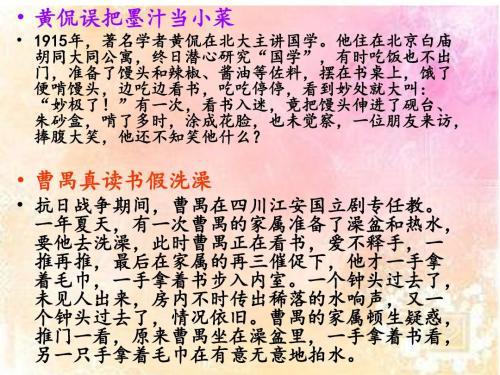 • 黄侃误把墨汁当小菜
• 1915年，著名学者黄侃在北大主讲国学。他住在北京白庙
胡同大同公寓，终日潜心研究“国学”，有时吃饭也不出
门，准备了馒头和辣椒、酱油等佐料，摆在书桌上，饿了
便啃馒头，边吃边看书，吃吃停停，看到妙处就大叫：
“妙极了！”有一次，看书入迷，竟把馒头伸进了砚台、
朱砂盒，啃了多时，涂成花脸，也未觉察，一位朋友来访，
捧腹大笑，他还不知笑他什么？
• 曹禺真读书假洗澡
• 抗日战争期间，曹禺在四川江安国立剧专任教。
一年夏天，有一次曹禺的家属准备了澡盆和热水，
要他去洗澡，此时曹禺正在看书，爱不释手，一
推再推，最后在家属的再三催促下，他才一手拿
着毛巾，一手拿着书步入内室。一个钟头过去了，
未见人出来，房内不时传出稀落的水响声，又一
个钟头过去了，情况依旧。曹禺的家属顿生疑惑，
推门一看，原来曹禺坐在澡盆里，一手拿着书看，
另一只手拿着毛巾在有意无意地拍水。